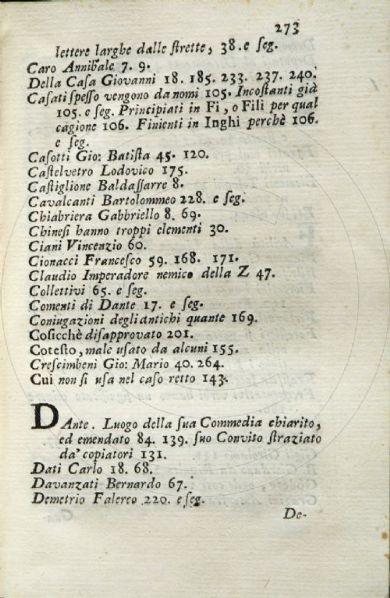 273
lettere larghe dalle strette, 38. e seg.
Caro Annibale 7. 9.
Della Casa Giovanni 18. 185. 233. 237. 240.
Casati spesso vengono da nomi 105. Incostanti già
105. e seg. Principiati in Fi, o Fili per qual
cagione 106. Finienti in Inghi perchè 106.
e seg.
Casotti Gio: Batista 45. 120.
Castelvetro Lodovico 175.
Castiglione Baldassarre 8.
Cavalcanti Bartolommeo 228. e seg.
Chiabriera Gabbriello 8. 69.
Chinesi hanno troppi elementi 30.
Ciani Vincenzio 60.
Cionacci Francesco 59. 168. 171.
Claudio Imperadore nemico della Z 47.
Collettivi 65. e seg.
Comenti di Dante 17. e seg.
Coniugazioni degli antichi quante 169.
Cosicchè disapprovato 201.
Cotesto, male usato da alcuni 155.
Crescimbeni Gio: Mario 40. 264.
Cui non si usa nel caso retto 143.
DAnte. Luogo della sua Commedia chiarito,
ed emendato 84. 139. suo Convito straziato
da' copiatori 131.
Dati Carlo 18. 68.
Davanzati Bernardo 67.
Demetrio Falereo 220. e seg.
De-